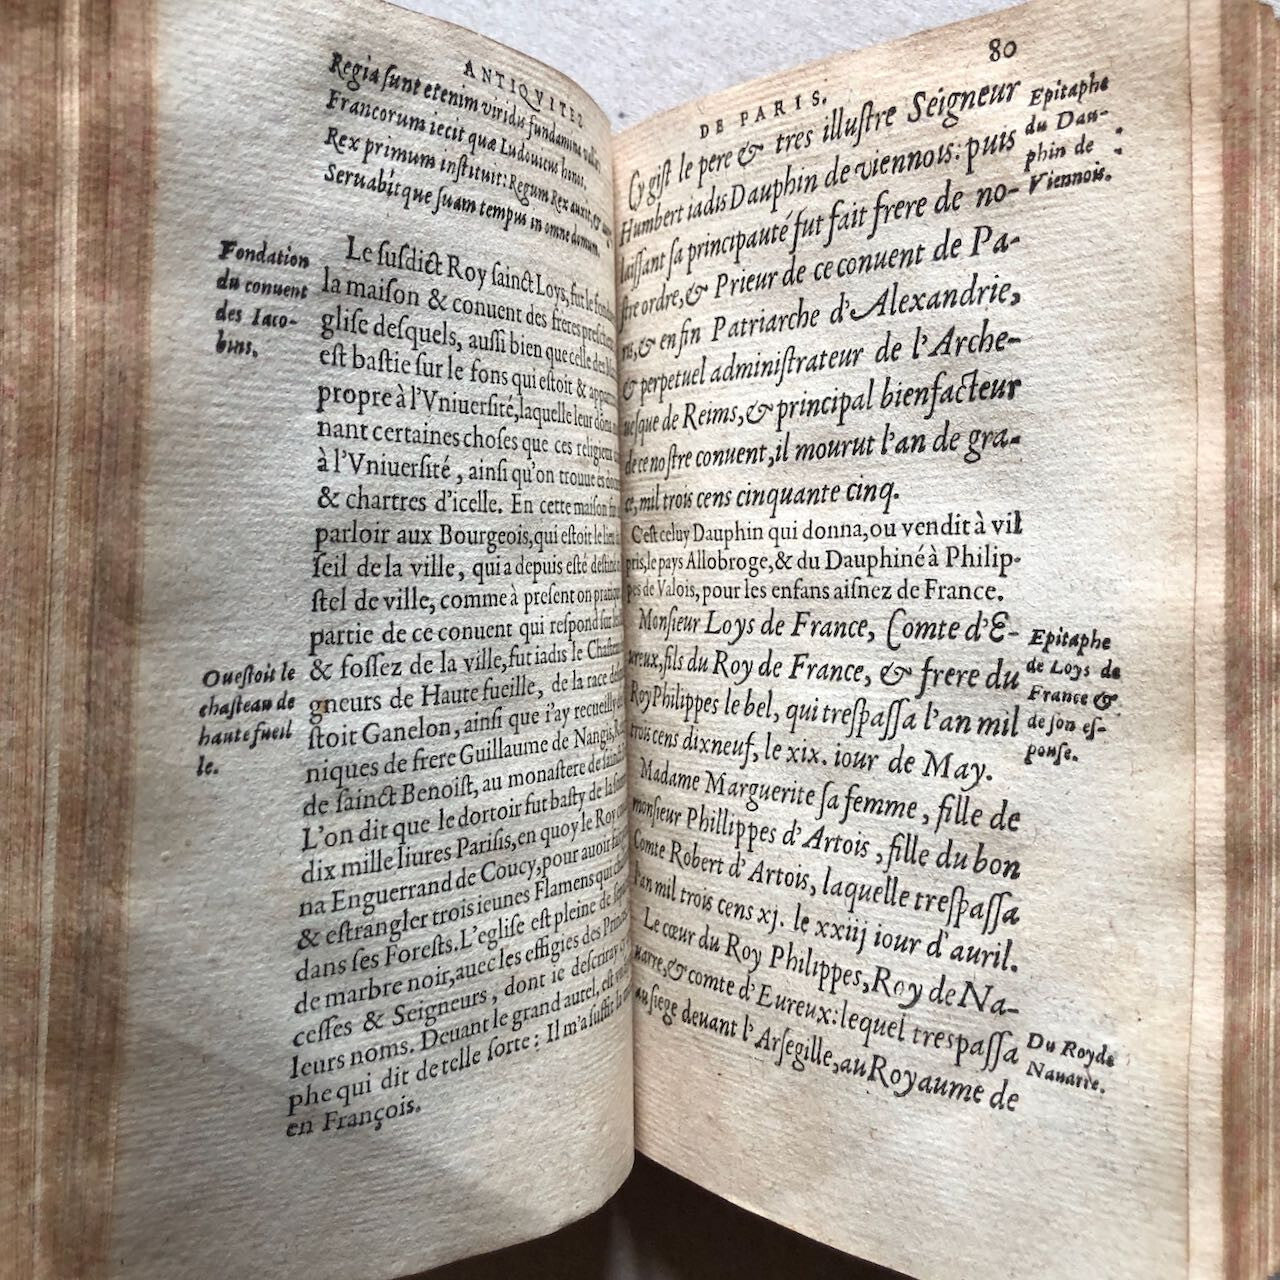 ANTIQVITEZ
Regia sunt etenim viridis fundamina
Francorum iecit quæ Ludouicus honos,
Rex primum instituit: Regum Rex auxit, &
Seruabitque suam tempus in omne domum.
Fondation
du conuent
des Iaco-
bins.
Le susdict Roy sainct Loys, fut le
la maison & conuent des freres
glise desquels, aussi bien que celle des
est bastie sur le fons qui estoit &
propre à l'Vniuersité, laquelle leur
nant certaines choses que ces religieux
à l'Vniuersité, ainsi qu'on trouue
& chartres d'icelle. En cette maison
parloir aux Bourgeois, qui estoit le
seil de la ville, qui a depuis esté
stel de ville, comme à present on
partie de ce conuent qui respond sur
& fossez de la ville, fut iadis le
gneurs de Haute fueille, de la race
stoit Ganelon, ainsi que i'ay recueilly
niques de frere Guillaume de Nangis,
de sainct Benoist, au monastere de
L'on dit que le dortoir fut basty de la
dix mille liures Parisis, en quoy le Roy
na Enguerrand de Coucy, pour auoir
& estrangler trois ieunes Flamens qui
dans ses Forests. L'eglise est pleine de
de marbre noir, auec les effigies des
cesses & Seigneurs, dont ie descriray
leurs noms. Deuant le grand autel, est
phe qui dit de telle sorte: Il m'a suffit la
en François.
Ou estoit le
chasteau de
haute fueil
le.
DE PARIS.
80
Cy gist le pere & tres illustre Seigneur
Humbert iadis Dauphin de viennois: puis
laissant sa principauté fut fait frere de no-
stre ordre, & Prieur de ce conuent de Pa-
ris, & en fin Patriarche d'Alexandrie,
& perpetuel administrateur de l'Arche-
uesque de Reims, & principal bienfacteur
de ce nostre conuent, il mourut l'an de gra-
ce, mil trois cens cinquante cinq.
Epitaphe
du Dau-
phin de
Viennois.
C'est celuy Dauphin qui donna, ou vendit à vil
pris, le pays Allobroge, & du Dauphiné à Philip-
pes de Valois, pour les enfans aisnez de France.
Monsieur Loys de France, Comte d'E-
ureux, fils du Roy de France, & frere du
Roy Philippes le bel, qui trespassa l'an mil
trois cens dixneuf, le xix. iour de May.
Epitaphe
de Loys de
France &
de son es-
ponse.
Madame Marguerite sa femme, fille de
monsieur Phillippes d'Artois, fille du bon
Comte Robert d'Artois, laquelle trespassa
l'an mil trois cens xj. le xxiij iour d'auril.
Le cœur du Roy Philippes, Roy de Na-
uarre, & comte d'Eureux: lequel trespassa
au siege deuant l'Arsegille, au Royaume de
Du Roy de
Nauarre.